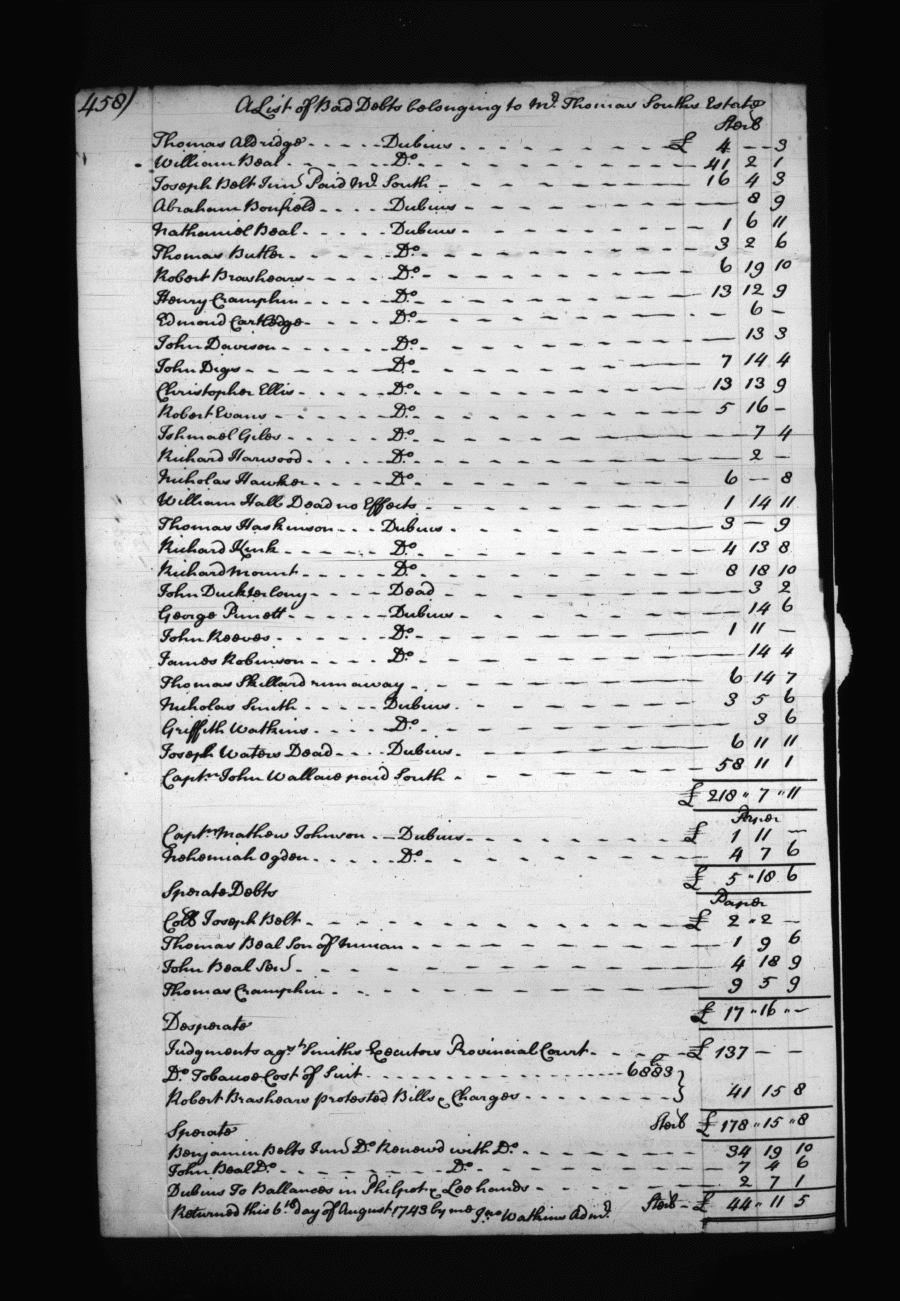 458)
A List of Bad Debts belonging to Mr. Thomas Souths Estate
Sterb
Thomas Aldridge - - - - - Dubius - - - £ 4 - - 3
William Beal - - - - - Do. - - - 41 2 1
Joseph Belt Junr Paid Mr. South - - - 16 4 3
Abraham Bonfield - - - - Dubius - - - 8 9
Nathaniel Beal - - - - Dubius - - - 1 6 11
Thomas Butler - - - - - Do. - - - 3 2 6
Robert Brashears - - - - Do. - - - 6 19 10
Henry Cramphin - - - - Do. - - - 13 12 9
Edmond Cartledge - - - - Do. - - - 6 -
John Davison - - - - - Do. - - - 13 3
John Digs - - - - - Do. - - - 7 14 4
Christopher Ellis - - - - Do. - - - 13 13 9
Robert Evans - - - - - Do. - - - 5 16 -
Ishmael Giles - - - - - Do. - - - 7 4
Richard Harwood - - - - Do. - - - 2 -
Nicholas Hawker - - - - Do. - - - 6 - 8
William Hall Dead no Effects - - - 1 14 11
Thomas Haskinson - - - Dubius - - - 3 - 9
Richard Kink - - - - - Do. - - - 4 13 8
Richard Mount - - - - Do. - - - 8 18 10
John Duckterlony - - - - Dead - - - 3 2
George Punett - - - - - Dubius - - - 14 6
John Reeves - - - - - Do. - - - 1 11 -
James Robinson - - - - Do. - - - 14 4
Thomas Skillard run away - - - 6 14 7
Nicholas Smith - - - - Dubius - - - 3 5 6
Griffith Watkins - - - - Do. - - - 3 6
Joseph Waters Dead - - - - Dubius - - - 6 11 11
Captn. John Wallace paid South - - - 58 11 1
£ 218 " 7 " 11
Paper
Captn Mathew Johnson - - Dubius - - - £ 1 11 -
Nehemiah Ogden - - - - Do. - - - 4 7 6
£ 5 " 18 6
Sperate Debts
Paper
Collo Joseph Belt - - - £ 2 " 2 -
Thomas Beal Son of Ninian - - - 1 9 6
John Beal Senr - - - 4 18 9
Thomas Cramphin - - - 9 5 9
£ 17 " 16 " -
Desperate
Judgments agst Smiths Executors Provincial Court - - - £ 137 - -
Do. Tobacoe Cost of Suit - - - 6883 }
Robert Brashears protested Bills & Charges - - - } 41 15 8
Sterb £ 178 " 15 " 8
Sperate
Benjamin Belts Junr Do. Renewd with Do. - - - 34 19 10
John Beal Do. - - - Do. - - - 7 4 6
Dubius To Ballances in Philpot & Lee hands - - - 2 7 1
Sterb - £ 44 " 11 5
Returned this 6th day of August 1743 by me Jno Watkins Admr.